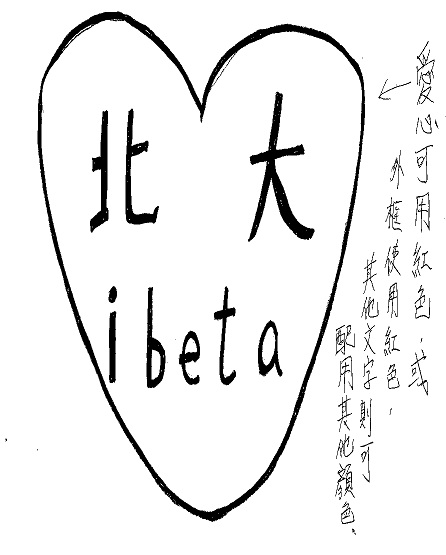 北大
ibeta
愛心可用紅色，或
外框使用紅色，
其他文字則可
配用其他顏色。